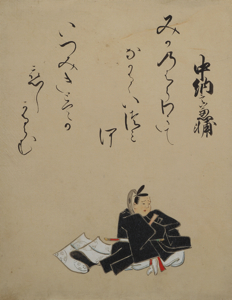 中納言兼輔
みかのはらわきて
なかるゝいつみ
河
いつみきとてか
恋し
かるらむ